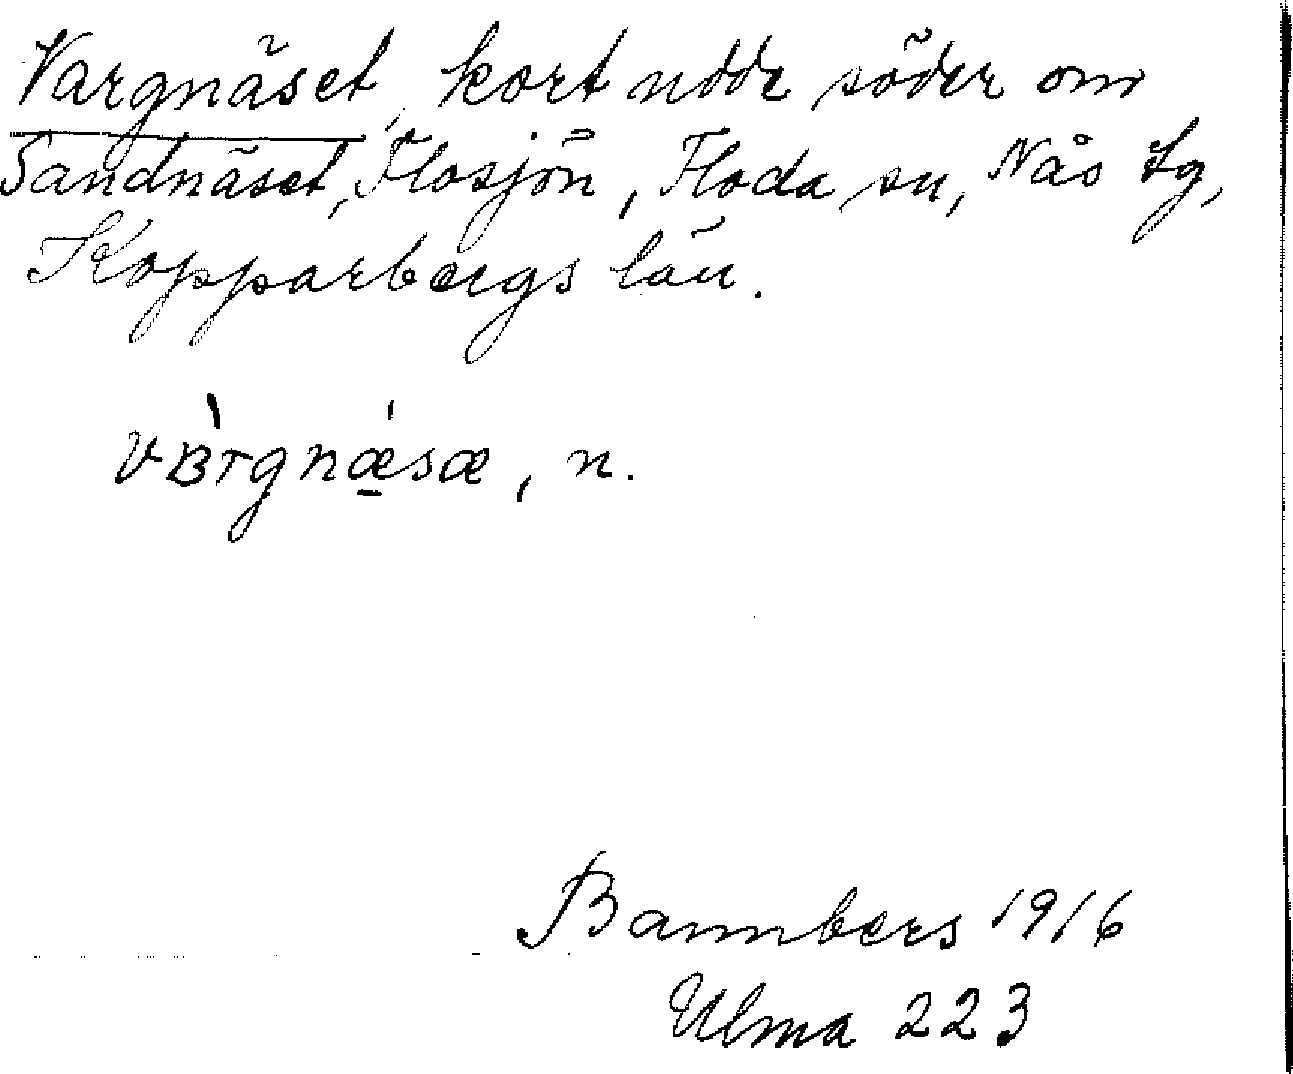 Vargnäset, kort udde söder om
Sandnäset, Flosjön, Floda sn, Nås tg,
Kopparbergs län.
vàrgnǽ̲sæ, n.
Bannbers 1916
Ulma 223